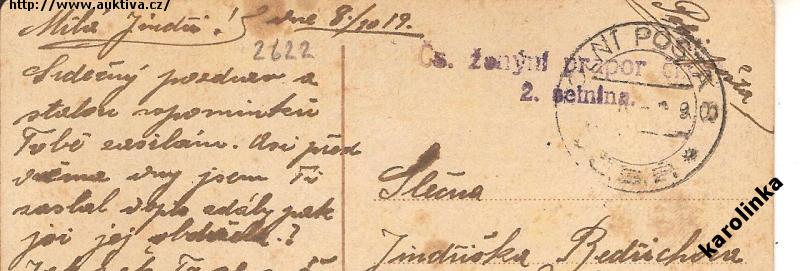 http://www.auktiva.cz/
Milá Jindři! dne 8./10 19.
2622
Srdečný pozdrav a
stalou vzpomínku
Tobě zasílám. Asi před
dny jsem Ti
zaslal dopis zdali pak
jsi jej obdržela?
Čs. ženijní prapor čís.
2. setnina.
POLNÍ POŠTA 8
Slečna
Jindřiška Bedřichova
karolinka